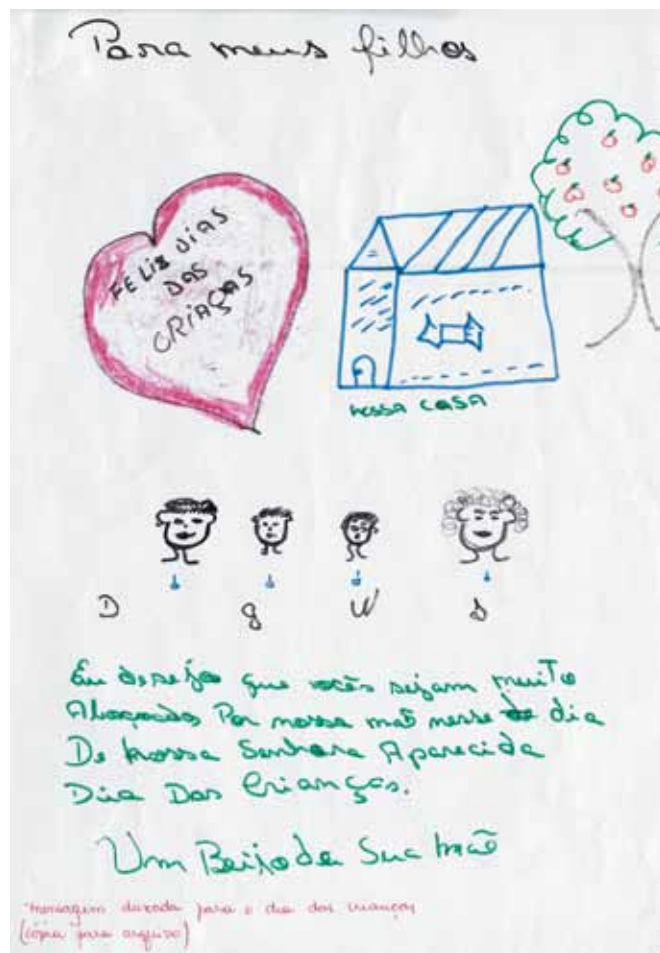 Para meus filhos
FELIZ DIAS
DAS
CRIAÇAS
NOSSA CASA
D g W s
Eu desejo que vocês sejam muito
Abaçoados Por nossa mãe nesse de dia
De Nossa Senhora Aparecida
Dia Das Crianças.
Um Beijo da Sua Mãe
mensagem deixada para o dia das crianças
(cópia para arquivo)